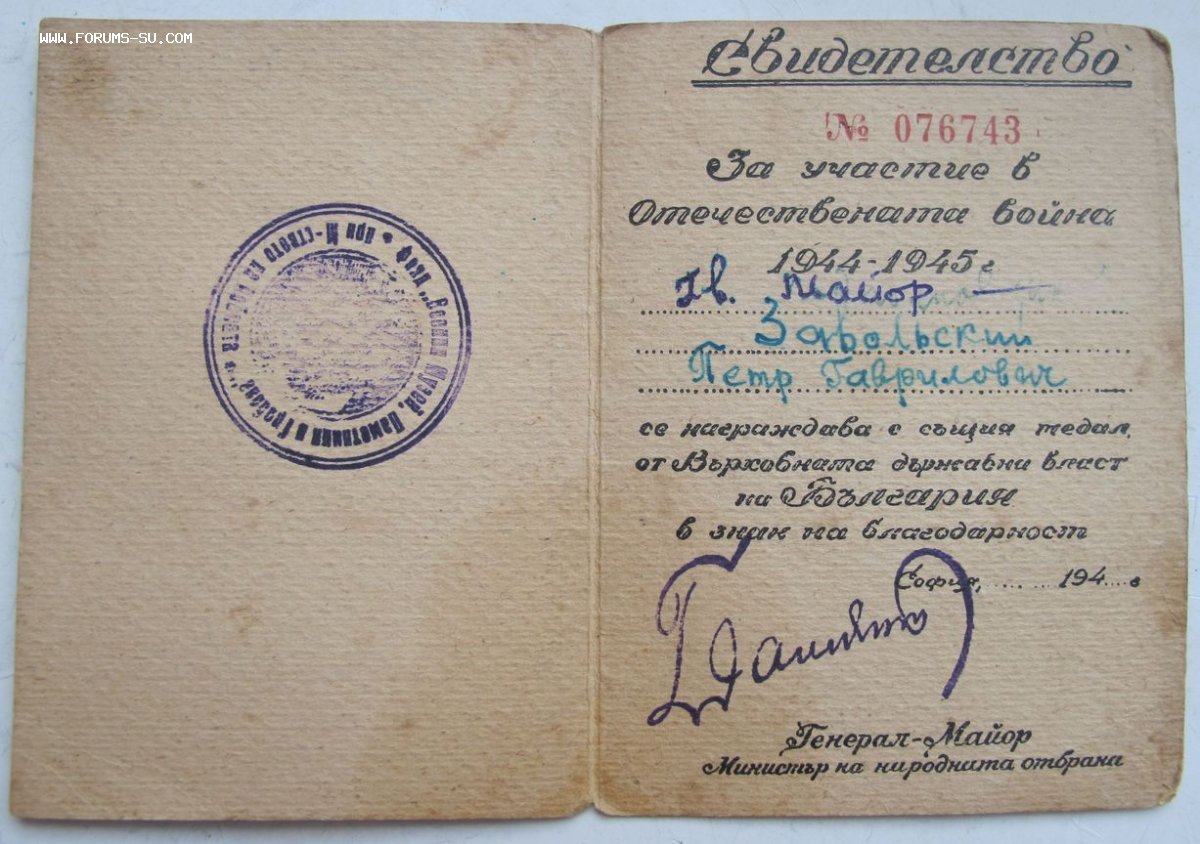 WWW.FORUMS-SU.COM
Военния музей, Паметници и Гробове"
при М-ството на
Свидетелство
№ 076743
За участие в
Отечествената война
1944-1945 г
Гв. Майор
Завольский
Петр Гаврилович
се награждава с същия медал,
от Върховната държавни власт
на България
в знак на благодарност
София, ...... ... 194....г
Генерал-Майор
Министър на народната отбрана